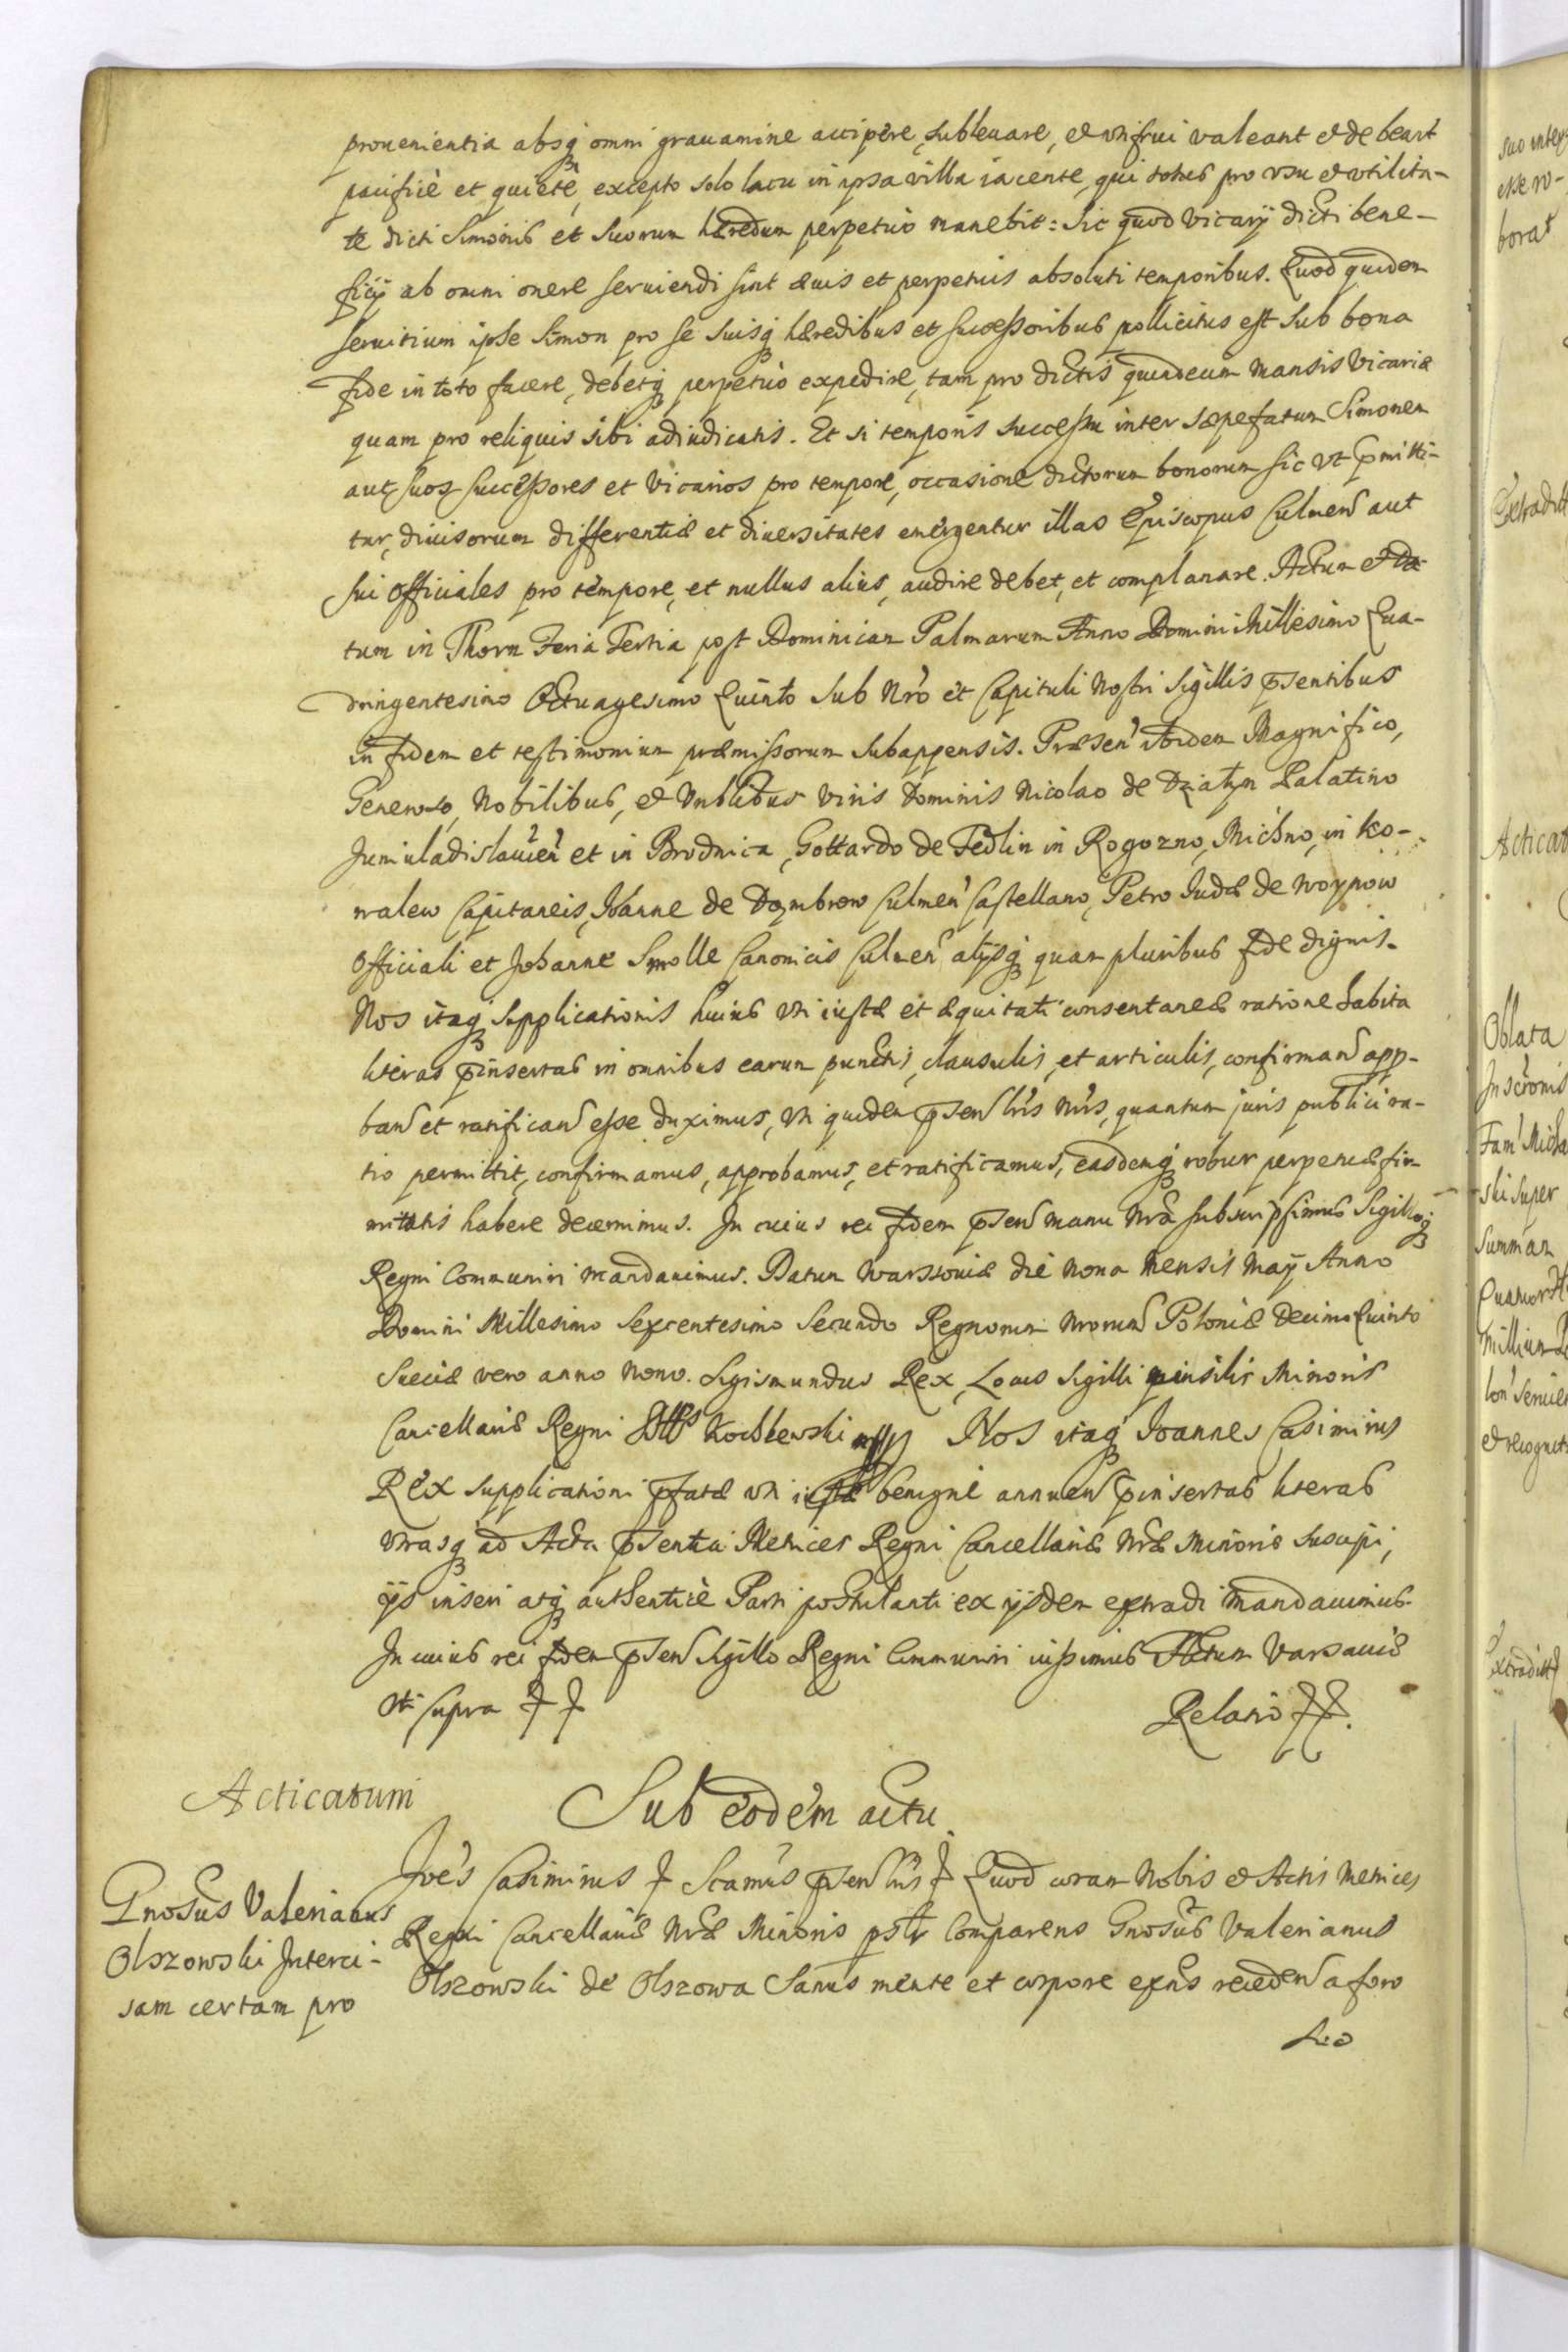 prouenientia absq omni grauamine accipere, subleuare, et uti frui valeant et debeant
pacificè et quietè, excepto solo lacu in ipsa villa iacente, qui totus pro vsu et vtilita-
te dicti Simonis et suorum hæredum perpetuò manebit: sic quod Vicarij dicti bene-
ficij ab omni onere seruiendi sint æuis et perpetuis absoluti temporibus. Quod quidem
seruitium ipse Simon pro se suisq hæredibus et successoribus pollicitus est sub bona
fide in toto facere, debetq perpetuò expedire, tam pro dictis quindecim mansis Vicariæ
quam pro reliquis sibi adiudicatis. Et si temporis successu inter sæpefatum Simonem
aut suos successores et Vicarios pro tempore, occasione dictorum bonorum sic vt pmitti-
tur, diuisorum differentiæ et diuersitates emergentur illas Episcopus Culmen aut
sui Officiales pro tempore, et nullus alius, audire debet, et complanare. Actum et Da-
tum in Thorn Feria Tertia post Dominicam Palmarum Anno Domini Millesimo Qua-
dringentesimo Octuagesimo Quinto sub Nro et Capituli Nostri Sigillis psentibus
in fidem et testimonium præmissorum subappensis. Præsen ibidem Magnifico,
Generoso, Nobilibus, et Dominis Nicolao de Dzialyn Palatino
Juniuladislauien et in Brodnica, Gottardo de Tedlin in Rogozno, Michno, in Ko-
walew Capitaneis, Joanne de Dąmbrow Culmen Castellano, Petro Judæ de Woynow
Officiali et Johanne Smolle Canonicis Culmen alijsq quam pluribus fide dignis.
Nos itaq supplicationis huius vti iustæ et æquitati consentaneæ ratione habita
literas pinsertas in omnibus earum punctis, clausulis, et articulis, confirman app-
ban et ratifican esse duximus, vti quidem psen lris nris, quantum juris publici ra-
tio permittit, confirmamus, approbamus, et ratificamus, easdemq robur perpetuæ fir-
mitatis habere decernimus. In cuius rei fidem psen manu Nra subscripsimus Sigilloq
Regni Communiri mandauimus. Datum Warssouiæ die nona Mensis Maij Anno
Domini Millesimo Sexcentesimo Secundo Regnorum Nrorum Poloniæ Decimo Quinto
Sueciæ vero anno nono. Sigismundus Rex, Locus Sigilli pensilis Minoris
Cancellariæ Regni Kochlewski mpp Nos itaq Joannes Casimirus
Rex supplicationi pfatæ vti iustæ benignè annuen pinsertas literas
vtrasq ad Acta psentia Metrices Regni Cancellariæ Nræ Minoris suscipi,
ijs inseri atq authenticè Parti postulanti ex ijsdem extradi mandauimus.
In cuius rei fidem psen sigillo Regni Communiri iussimus Actum Varsauiæ
Vti supra
Relatio
Acticatum
Sub eodem actu
Gnosus Valerianus
Olszowski Interci-
sam certam pro
Joes Casimirus Scamus psen lris Quod coram Nobis et Actis Metrices
Regni Cancellariæ Nræ Minoris psltr Comparens Gnosus Valerianus
Olszowski de Olszowa Sanus mente et corpore exns receden a foro
suo
Acticat
Oblata
Summam